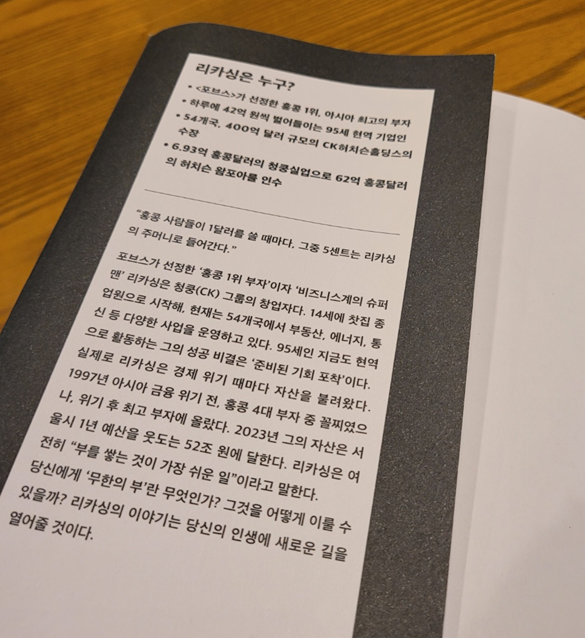 리카싱은 누구?
• <포브스>가 선정한 홍콩 1위, 아시아 최고의 부자
• 하루에 42억 원씩 벌어들이는 95세 현역 기업인
• 54개국, 400억 달러 규모의 CK허치슨홀딩스의
수장
• 6.93억 홍콩달러의 청쿵실업으로 62억 홍콩달러
의 허치슨 왐포아를 인수
“홍콩 사람들이 1달러를 쓸 때마다, 그중 5센트는 리카싱
의 주머니로 들어간다.”
포브스가 선정한 ‘홍콩 1위 부자’이자 ‘비즈니스계의 슈퍼
맨’ 리카싱은 청쿵(CK) 그룹의 창업자다. 14세에 찻집 종
업원으로 시작해, 현재는 54개국에서 부동산, 에너지, 통
신 등 다양한 사업을 운영하고 있다. 95세인 지금도 현역
으로 활동하는 그의 성공 비결은 ‘준비된 기회 포착’이다.
실제로 리카싱은 경제 위기 때마다 자산을 불려왔다.
1997년 아시아 금융 위기 전, 홍콩 4대 부자 중 꼴찌였으
나, 위기 후 최고 부자에 올랐다. 2023년 그의 자산은 서
울시 1년 예산을 웃도는 52조 원에 달한다. 리카싱은 여
전히 “부를 쌓는 것이 가장 쉬운 일”이라고 말한다.
당신에게 ‘무한의 부’란 무엇인가? 그것을 어떻게 이룰 수
있을까? 리카싱의 이야기는 당신의 인생에 새로운 길을
열어줄 것이다.